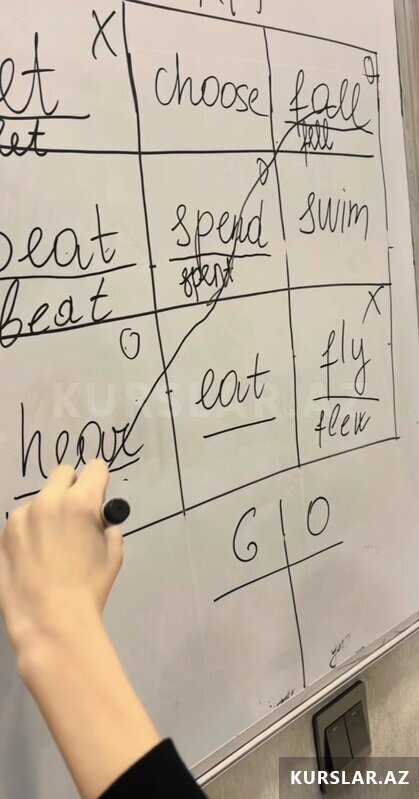 X
choose
fall
O
fell
let
O
beat
spend
swim
spent
beat
O
X
hear
eat
fly
flew
KURSLAR.AZ
G O
KURSLAR.AZ